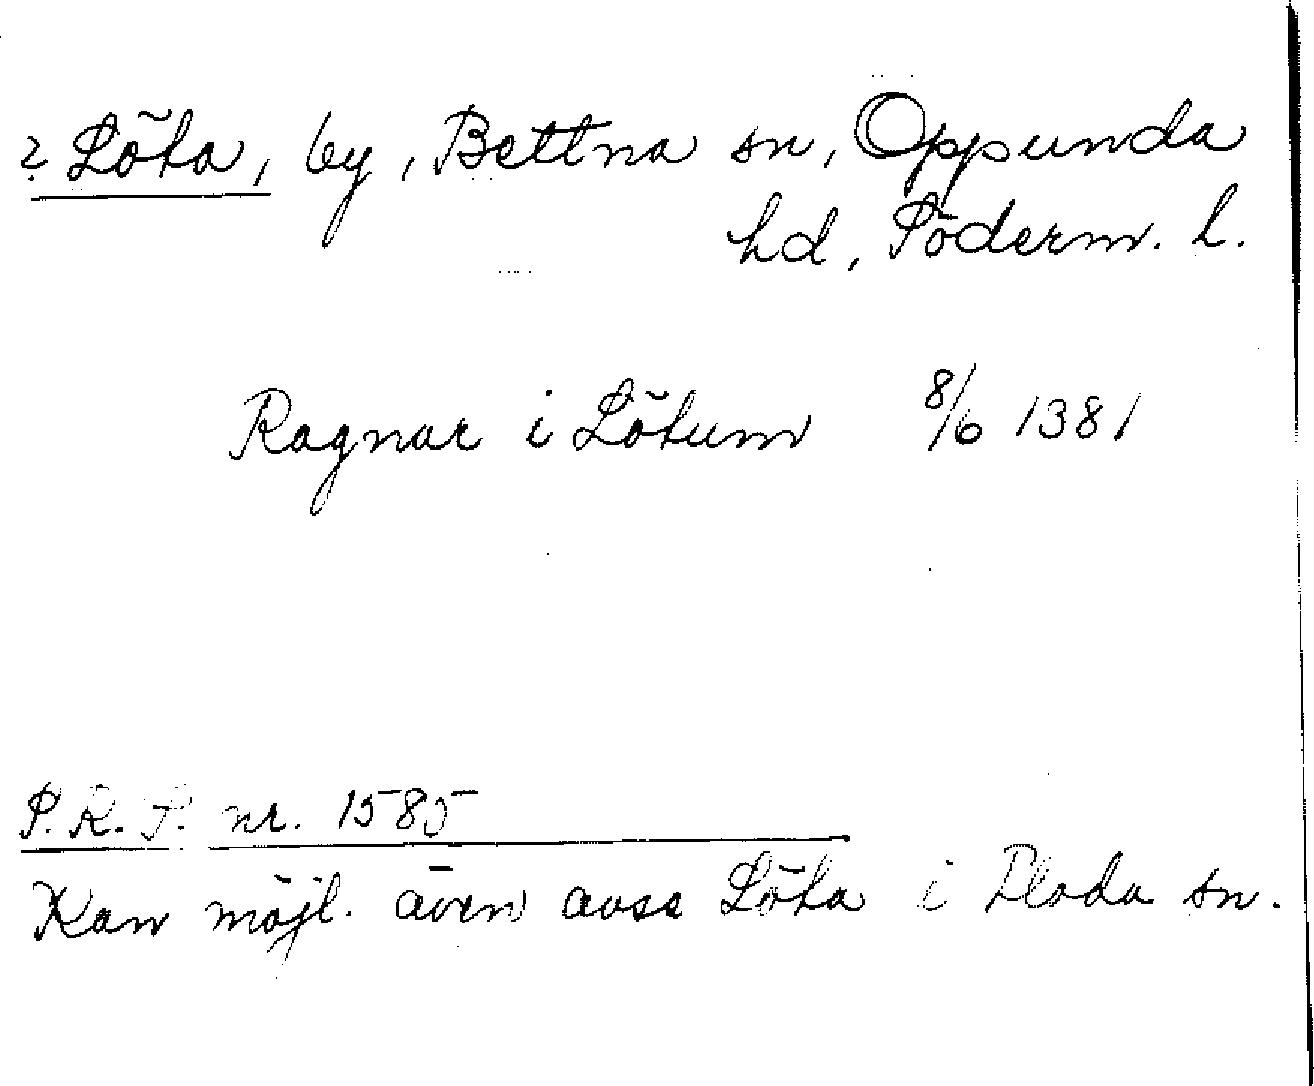 ? Löta, by, Bettna sn, Oppunda
hd, Söderm. l.
Ragnar i Lötum 8/6 1381
P.R.P. nr. 1585
Kan möjl. även avse Löta i Floda sn.